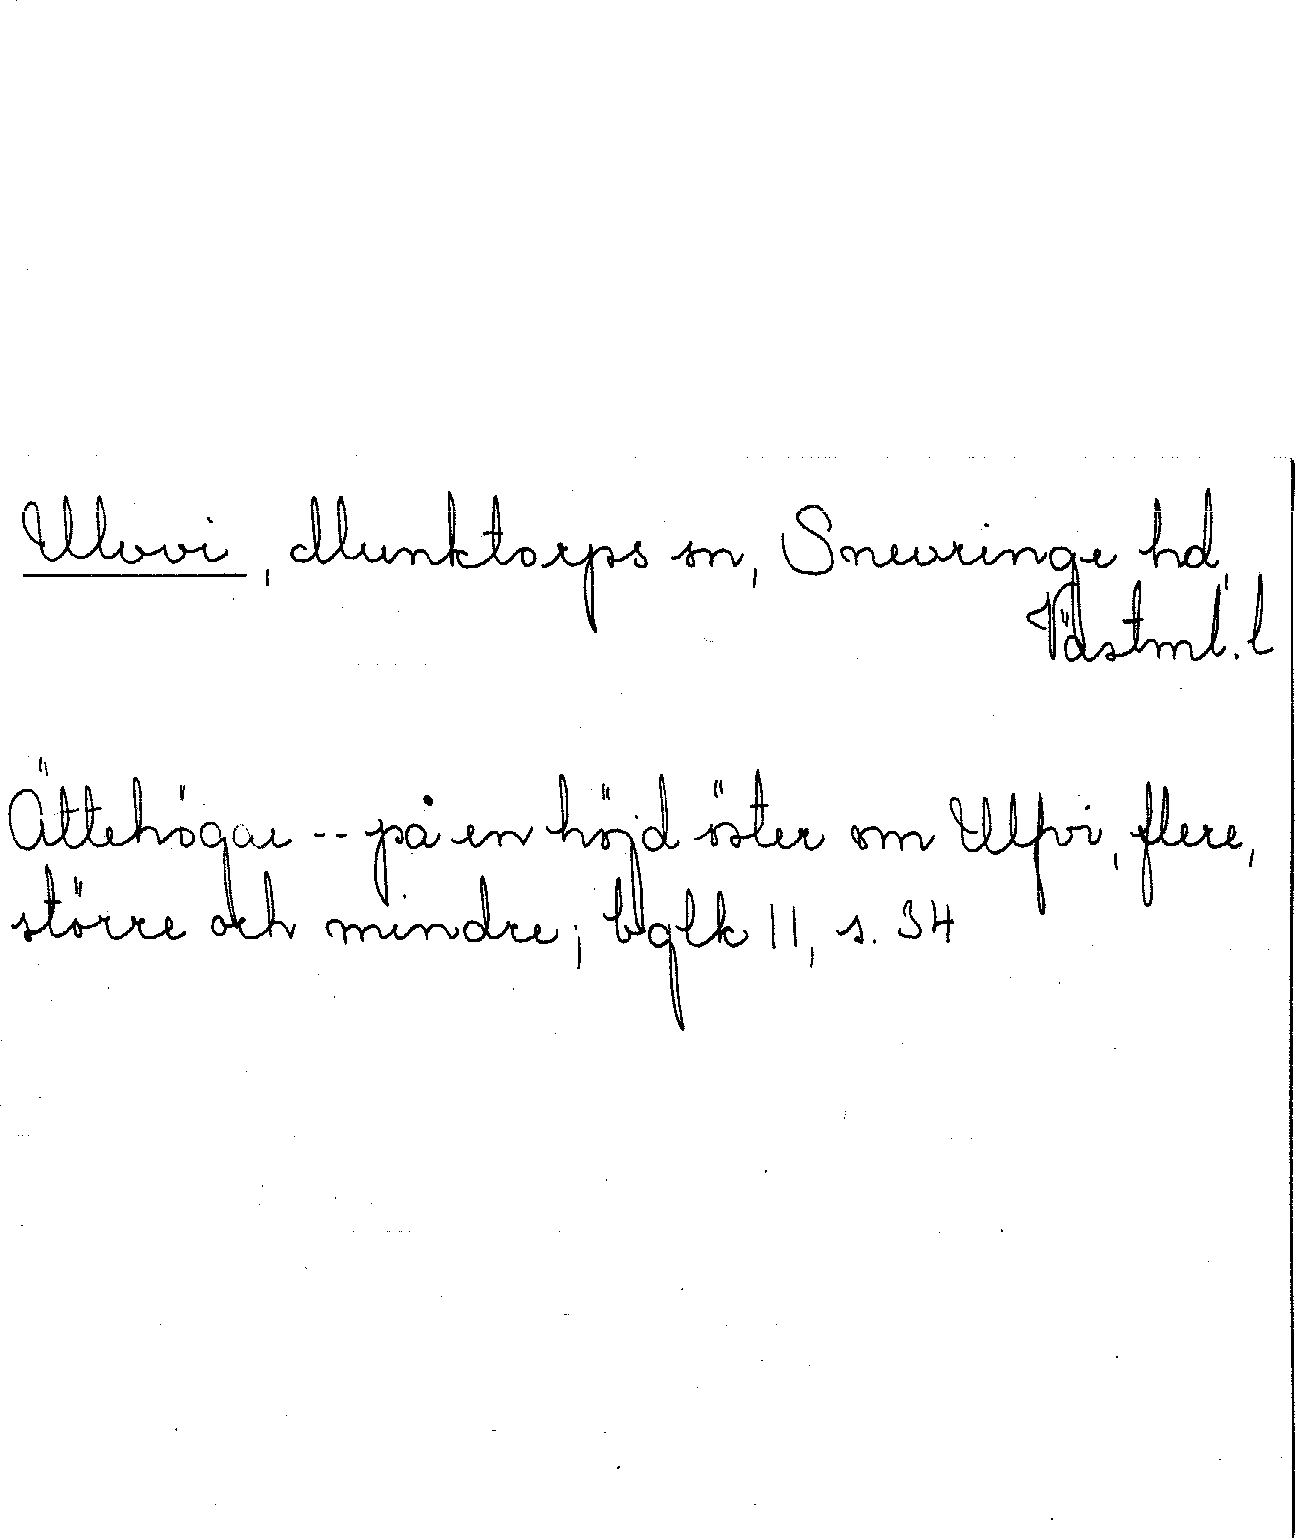 Ulvvi, Munktorps sn, Snevringe hd,
Västml. l
Ättehögar -- på en höjd öster om Ulfvi, flere,
större och mindre; bglk 11, s. 34